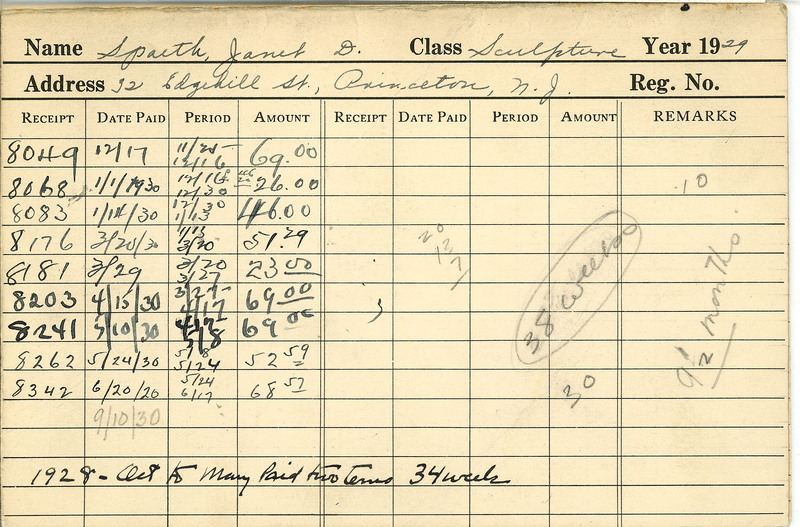 Name Spaeth, Janet D. Class Sculpture Year 1929
Address 32 Edgehill St., Princeton, N.J. Reg. No.
RECEIPT DATE PAID PERIOD AMOUNT RECEIPT DATE PAID PERIOD AMOUNT REMARKS
8049 12/17 11/25- 12/16 69.00
8068 1/1/1930 12/16 12/30 26.00 10
8083 1/14/30 12/30 1/13 46.00
8176 3/20/30 1/13 3/20 51.29
8181 3/29 3/20 3/27 23 00
8203 4/15/30 3/27- 4/17 69 00
8241 5/10/30 4/17 5/8 69 00
8262 5/24/30 5/8 5/24 52 59
8342 6/20/20 5/24 6/17 68 57
9/10/30
20
127
38 weeks
30
9 1/2 months
1928 - Oct to May Paid two terms 34 weeks